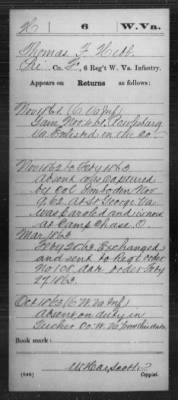 H 6 W.Va.
Thomas F. Hill
Co. F, 6 Reg't W. Va. Infantry.
Appears on
Returns
as follows:
Nov 1861
Gain Nov
Va. Enlisted in the Co
Nov 1862 to Feby 1863
absent
by Col Imboden Nov
9, 62. at St George Va
was paroled and is now
at Camp Chase, O.
Mar 1863
Feby 20 63 Exchanged
and sent to Regt order
No 10 dat order Feby
27 1863.
Oct 1863 (6 W Va Inf)
Absent on duty in
Tucker Co. W. Va
Book mark:
(546)
Copyist.